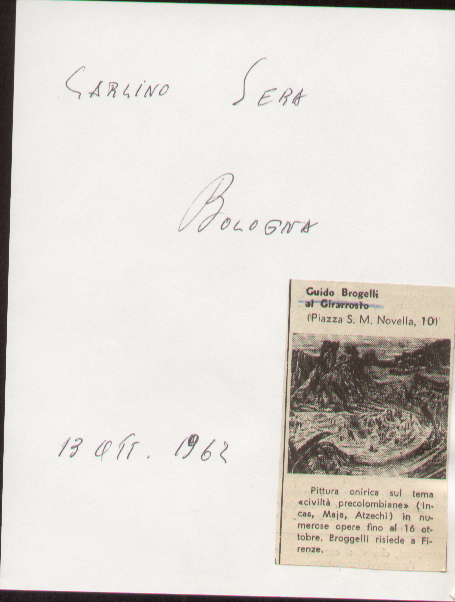 CARLINO SERA
BOLOGNA
13 OTT. 1962
Guido Brogelli
al Girarrosto
(Piazza S. M. Novella, 10)
Pittura onirica sul tema
«civiltà precolombiane» (In-
cas, Maja, Atzechi) in nu-
merose opere fino al 16 ot-
tobre. Broggelli risiede a Fi-
renze.